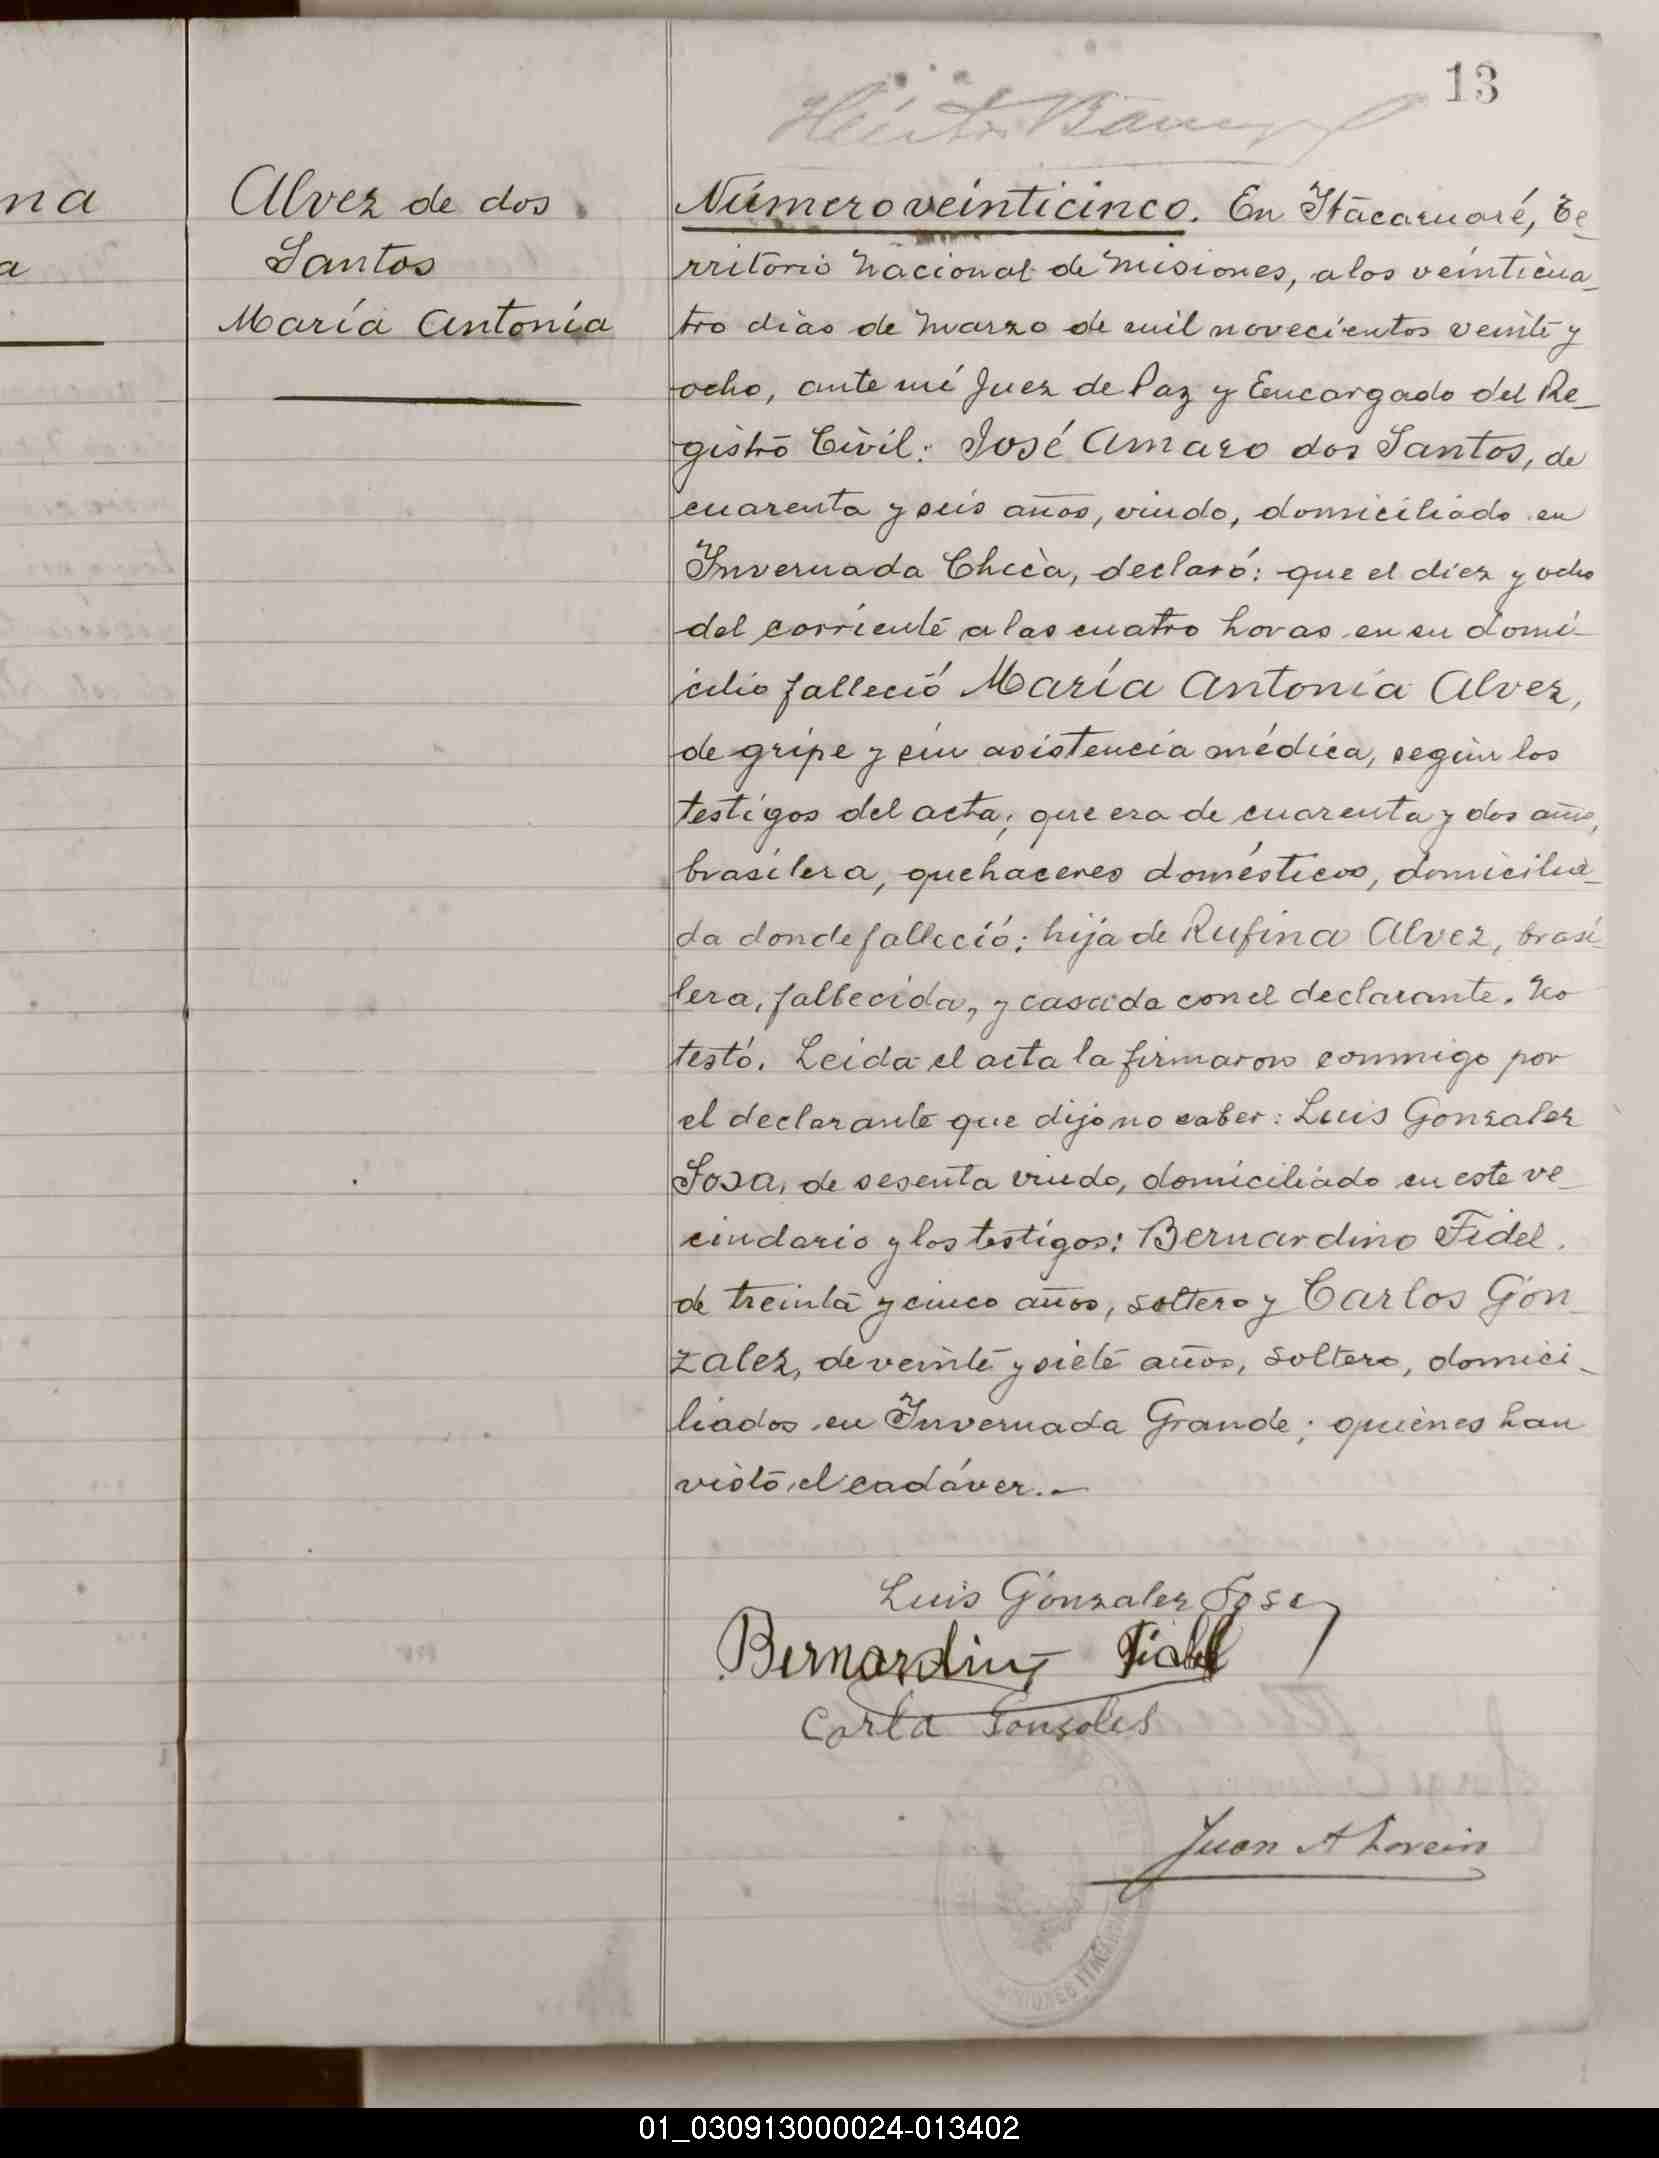 13
na
a
Alvez de dos
Santos
María Antonia
Número veinticinco. En Itacaruaré, Te-
rritorio Nacional de Misiones, a los veinticua-
tro dias de Marzo de mil novecientos veinte y
ocho, ante mí Juez de Paz y Encargado del Re-
gistro Civil: José Amaro dos Santos, de
cuarenta y seis años, viudo, domiciliado en
Invernada Chica, declaró: que el diez y ocho
del corriente a las cuatro horas en su domi-
cilio falleció María Antonia Alvez,
de gripe y sin asistencia médica, según los
testigos del acta; que era de cuarenta y dos años,
brasilera, quehaceres domésticos, domicilia-
da donde falleció; hija de Rufina Alvez, brasi-
lera, fallecida, y casada con el declarante. No
testó. Leida el acta la firmaron conmigo por
el declarante que dijo no saber: Luis Gonzalez
Sosa, de sesenta viudo, domiciliado en este ve-
cindario y los testigos: Bernardino Fidel.
de treinta y cinco años, soltero y Carlos Gon
zalez, de veinte y siete años, soltero, domici-
liados en Invernada Grande; quienes han
visto el cadáver.-
Luis Gonzalez Sosa
Bernardino Fidel
Gonsales
Juan A
MISIONES ITACARUARE
01_030913000024-013402